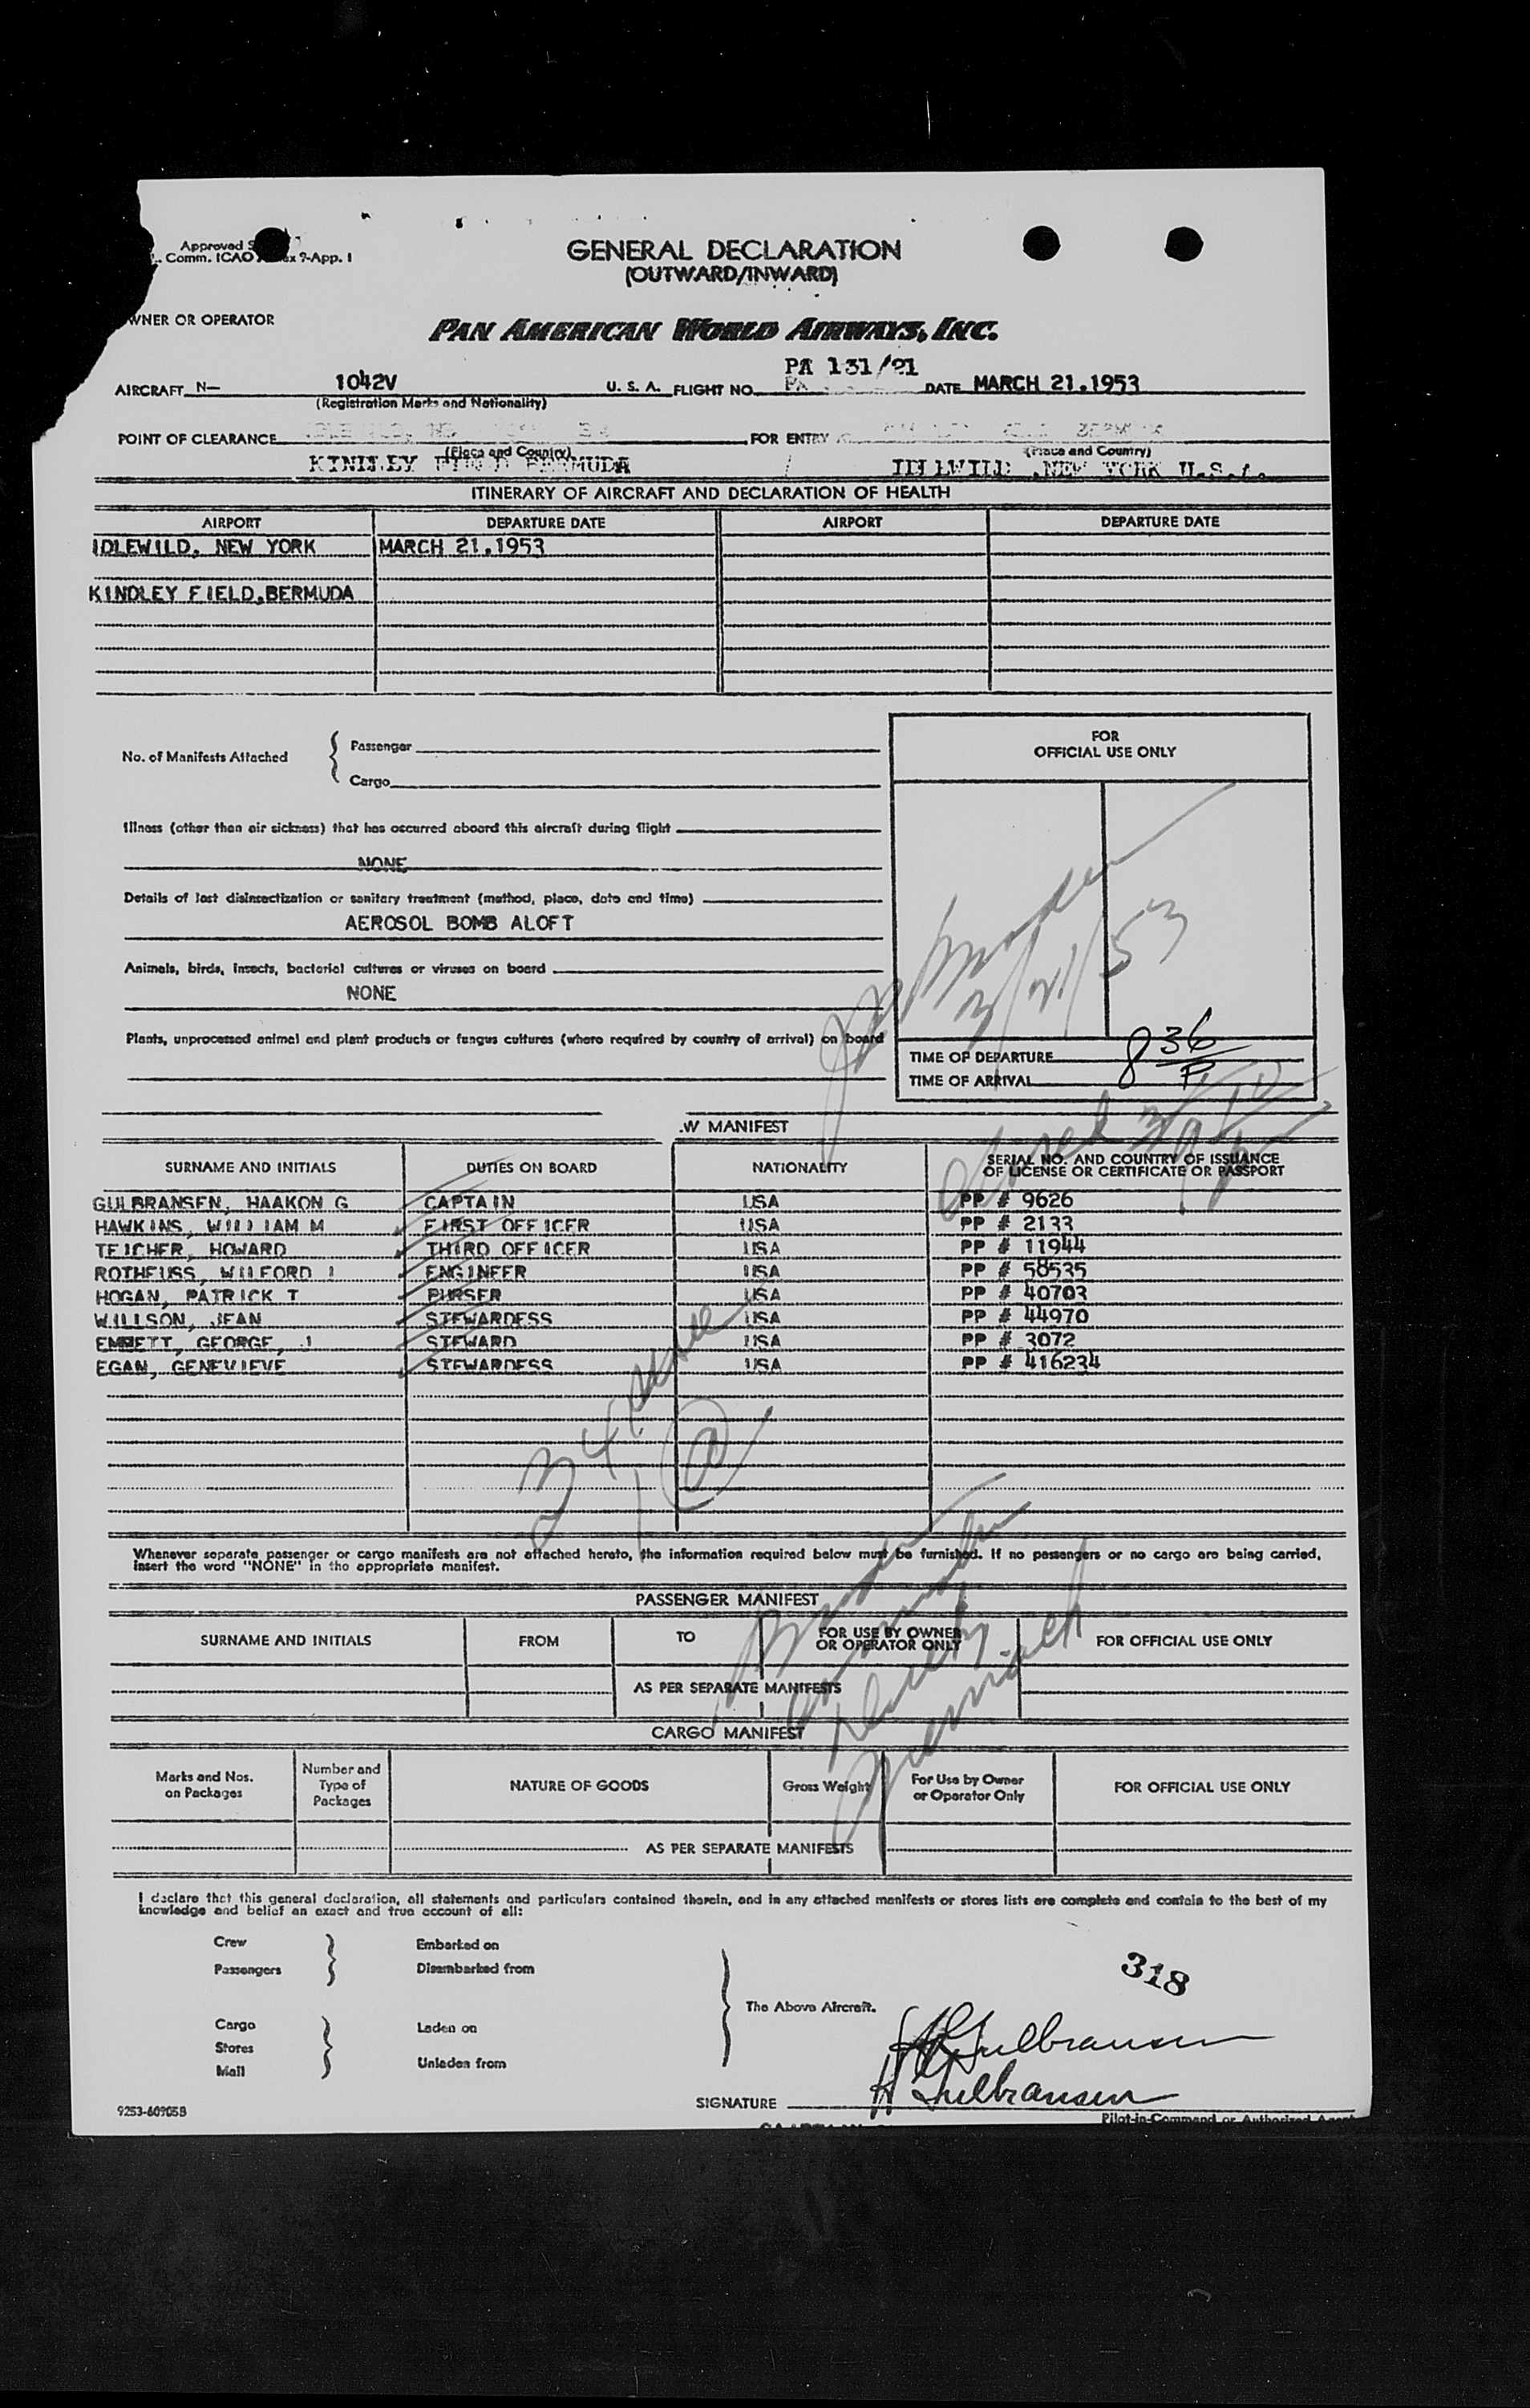 Approved
Comm. ICAO 9-App. 1
GENERAL DECLARATION
(OUTWARD/INWARD)
WNER OR OPERATOR
PAN AMERICAN WORLD AIRWAYS, INC.
PA 131/21
AIRCRAFT N— 1042V U. S. A. FLIGHT NO. DATE MARCH 21.1953
(Registration Marks and Nationality)
POINT OF CLEARANCE FOR ENTRY
(Place and Country) (Place and Country)
KINDLEY FIELD BERMUDA IDLEWILD ,NEW YORK U.S.A.
ITINERARY OF AIRCRAFT AND DECLARATION OF HEALTH
AIRPORT DEPARTURE DATE AIRPORT DEPARTURE DATE
IDLEWILD, NEW YORK MARCH 21.1953
KINDLEY FIELD,BERMUDA
FOR
OFFICIAL USE ONLY
No. of Manifests Attached { Passenger
Cargo
Illness (other than air sickness) that has occurred aboard this aircraft during flight
NONE
Details of last disinsectization or sanitary treatment (method, place, date and time)
AEROSOL BOMB ALOFT
Animals, birds, insects, bacterial cultures or viruses on board
NONE
3/21/53
Plants, unprocessed animal and plant products or fungus cultures (where required by country of arrival) on board
TIME OF DEPARTURE 8 36
TIME OF ARRIVAL P
.W MANIFEST
SURNAME AND INITIALS DUTIES ON BOARD NATIONALITY SERIAL NO. AND COUNTRY OF ISSUANCE
OF LICENSE OR CERTIFICATE OR PASSPORT
GULBRANSEN, HAAKON G CAPTAIN USA PP # 9626
HAWKINS, WILLIAM M FIRST OFFICER USA PP # 2133
TEICHER, HOWARD THIRD OFFICER USA PP # 11944
ROTHFUSS, WILFORD L ENGINEER USA PP # 58535
HOGAN, PATRICK T PURSER USA PP # 40703
WILLSON, JEAN STEWARDESS USA PP # 44970
EMMETT, GEORGE, J STEWARD USA PP # 3072
EGAN, GENEVIEVE STEWARDESS USA PP # 416234
34
Whenever separate passenger or cargo manifests are not attached hereto, the information required below must be furnished. If no passengers or no cargo are being carried,
insert the word "NONE" in the appropriate manifest.
PASSENGER MANIFEST
SURNAME AND INITIALS FROM TO FOR USE BY OWNER
OR OPERATOR ONLY FOR OFFICIAL USE ONLY
AS PER SEPARATE MANIFESTS
CARGO MANIFEST
Marks and Nos.
on Packages Number and
Type of
Packages NATURE OF GOODS Gross Weight For Use by Owner
or Operator Only FOR OFFICIAL USE ONLY
AS PER SEPARATE MANIFESTS
I declare that this general declaration, all statements and particulars contained therein, and in any attached manifests or stores lists are complete and contain to the best of my
knowledge and belief an exact and true account of all:
Crew Embarked on
Passengers Disembarked from
318
The Above Aircraft.
Cargo Laden on
Stores
Mail Unladen from
HGulbransen
H Gulbransen
SIGNATURE
9253-60905B
Pilot-in-Command or Authorized Agent